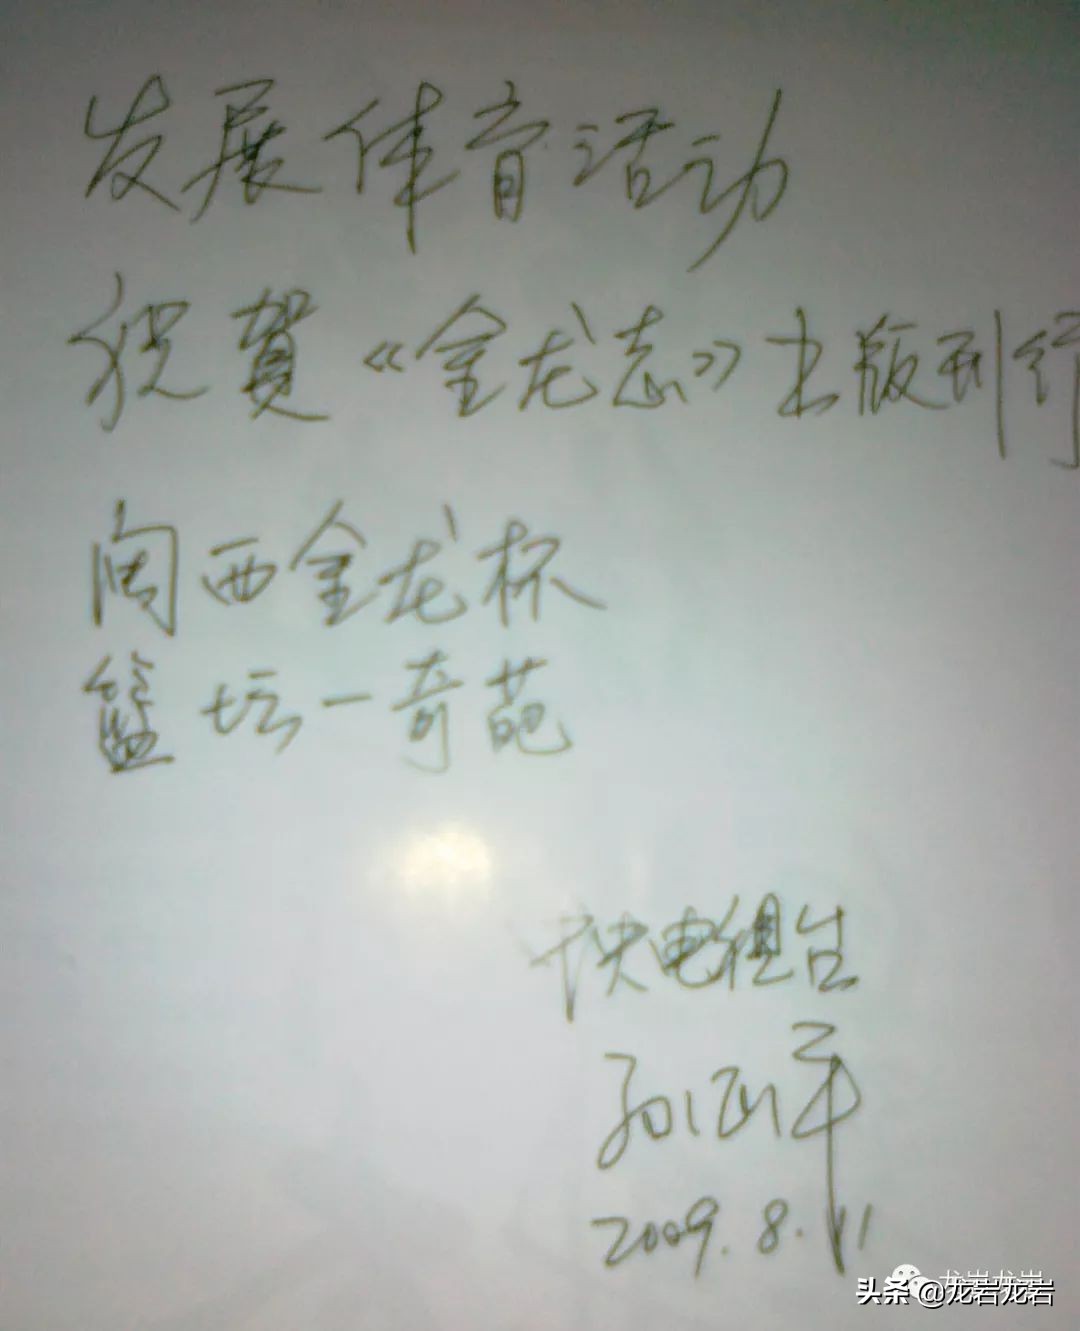 发展体育活动
祝賀《金龙志》出版刊行
闽西金龙杯
籃坛一奇葩
中央电视台
孙正平
2009.8.11
龙岩龙岩
头条@龙岩龙岩